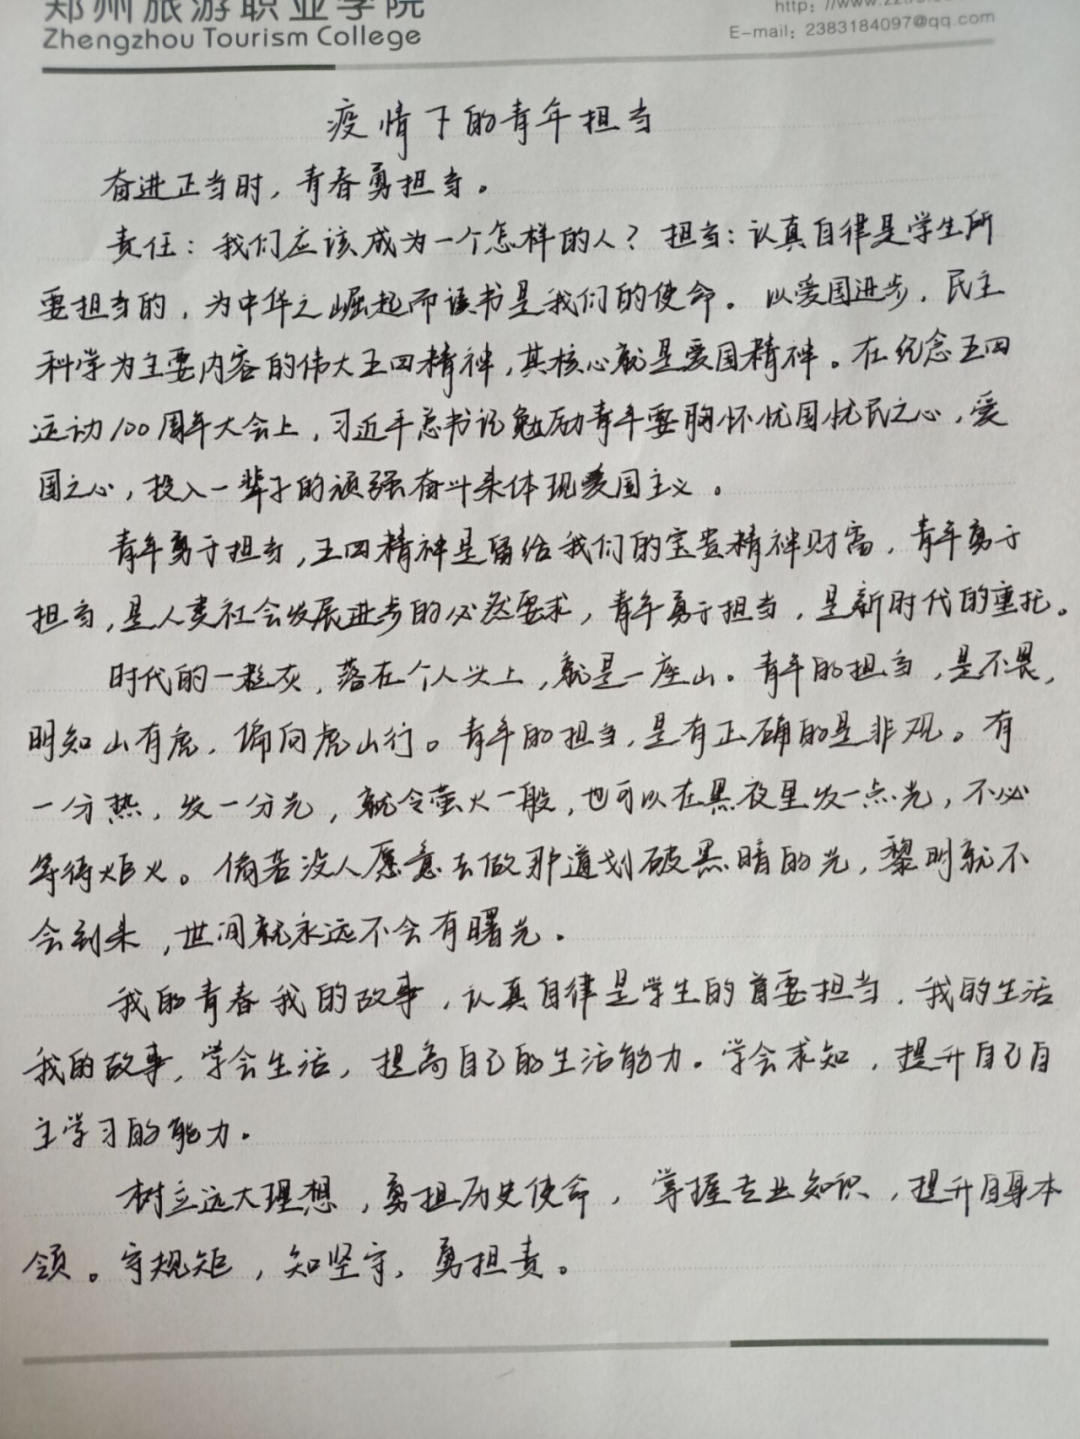 郑州旅游职业学院
Zhengzhou Tourism College
http: //www.zztrc.
E-mail: 2383184097@qq.com
疫情下的青年担当
奋进正当时，青春勇担当。
责任：我们应该成为一个怎样的人？担当：认真自律是学生所
要担当的，为中华之崛起而读书是我们的使命。以爱国进步，民主
科学为主要内容的伟大五四精神，其核心就是爱国精神。在纪念五四
运动100周年大会上，习近平总书记勉励青年要胸怀忧国忧民之心，爱
国之心，投入一辈子的顽强奋斗来体现爱国主义。
青年勇于担当，五四精神是留给我们的宝贵精神财富，青年勇于
担当，是人类社会发展进步的必然要求，青年勇于担当，是新时代的重托。
时代的一粒灰，落在个人头上，就是一座山。青年的担当，是不畏，
明知山有虎，偏向虎山行。青年的担当，是有正确的是非观。有
一分热，发一分光，就令萤火一般，也可以在黑夜里发一点光，不必
等待炬火。倘若没人愿意去做那道划破黑暗的光，黎明就不
会到来，世间就永远不会有曙光。
我的青春我的故事，认真自律是学生的首要担当，我的生活
我的故事，学会生活，提高自己的生活能力。学会求知，提升自己自
主学习的能力。
树立远大理想，勇担历史使命，掌握专业知识，提升自身本
领。守规矩，知坚守，勇担责。